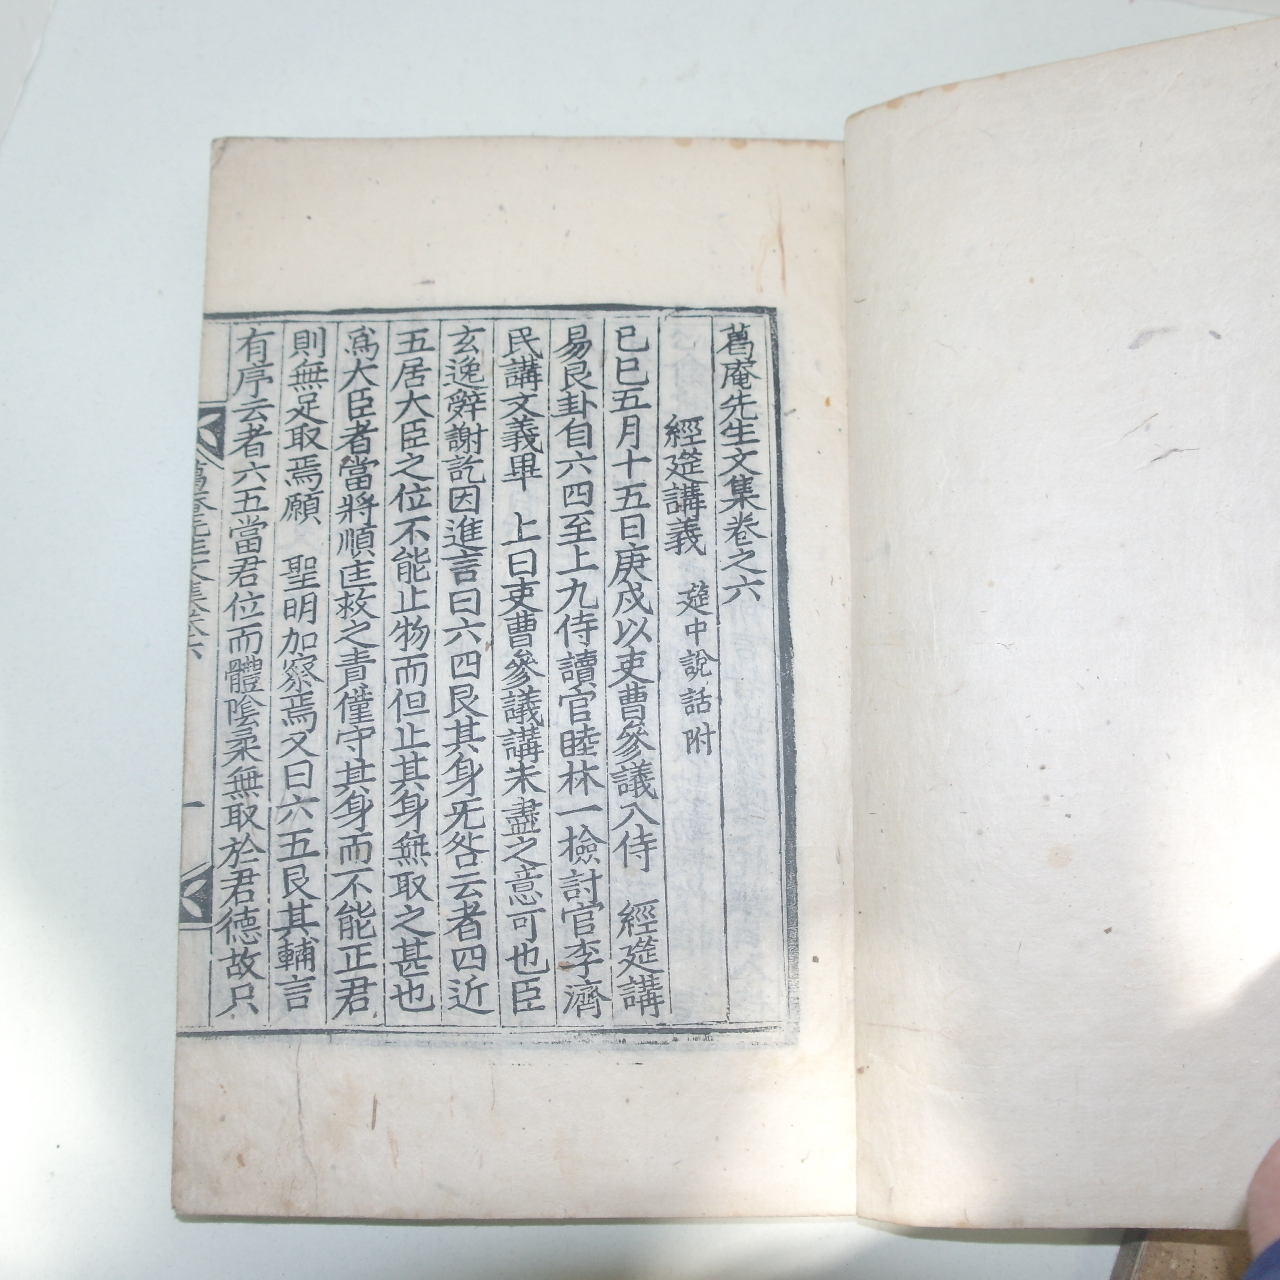 葛庵先生文集卷之六
經筵講義 筵中說話附
己巳五月十五日庚戌以吏曹參議入侍 經筵講
易艮卦自六四至上九侍讀官睦林一檢討官李濟
民講文義畢 上曰吏曹參議講未盡之意可也臣
玄逸辭謝訖因進言曰六四艮其身旡咎云者四近
五居大臣之位不能止物而但止其身無取之甚也
爲大臣者當將順匡救之責僅守其身而不能正君
則無足取焉願 聖明加察焉又曰六五艮其輔言
有序云者六五當君位而體陰柔無取於君德故只
葛庵先生文集卷六
一